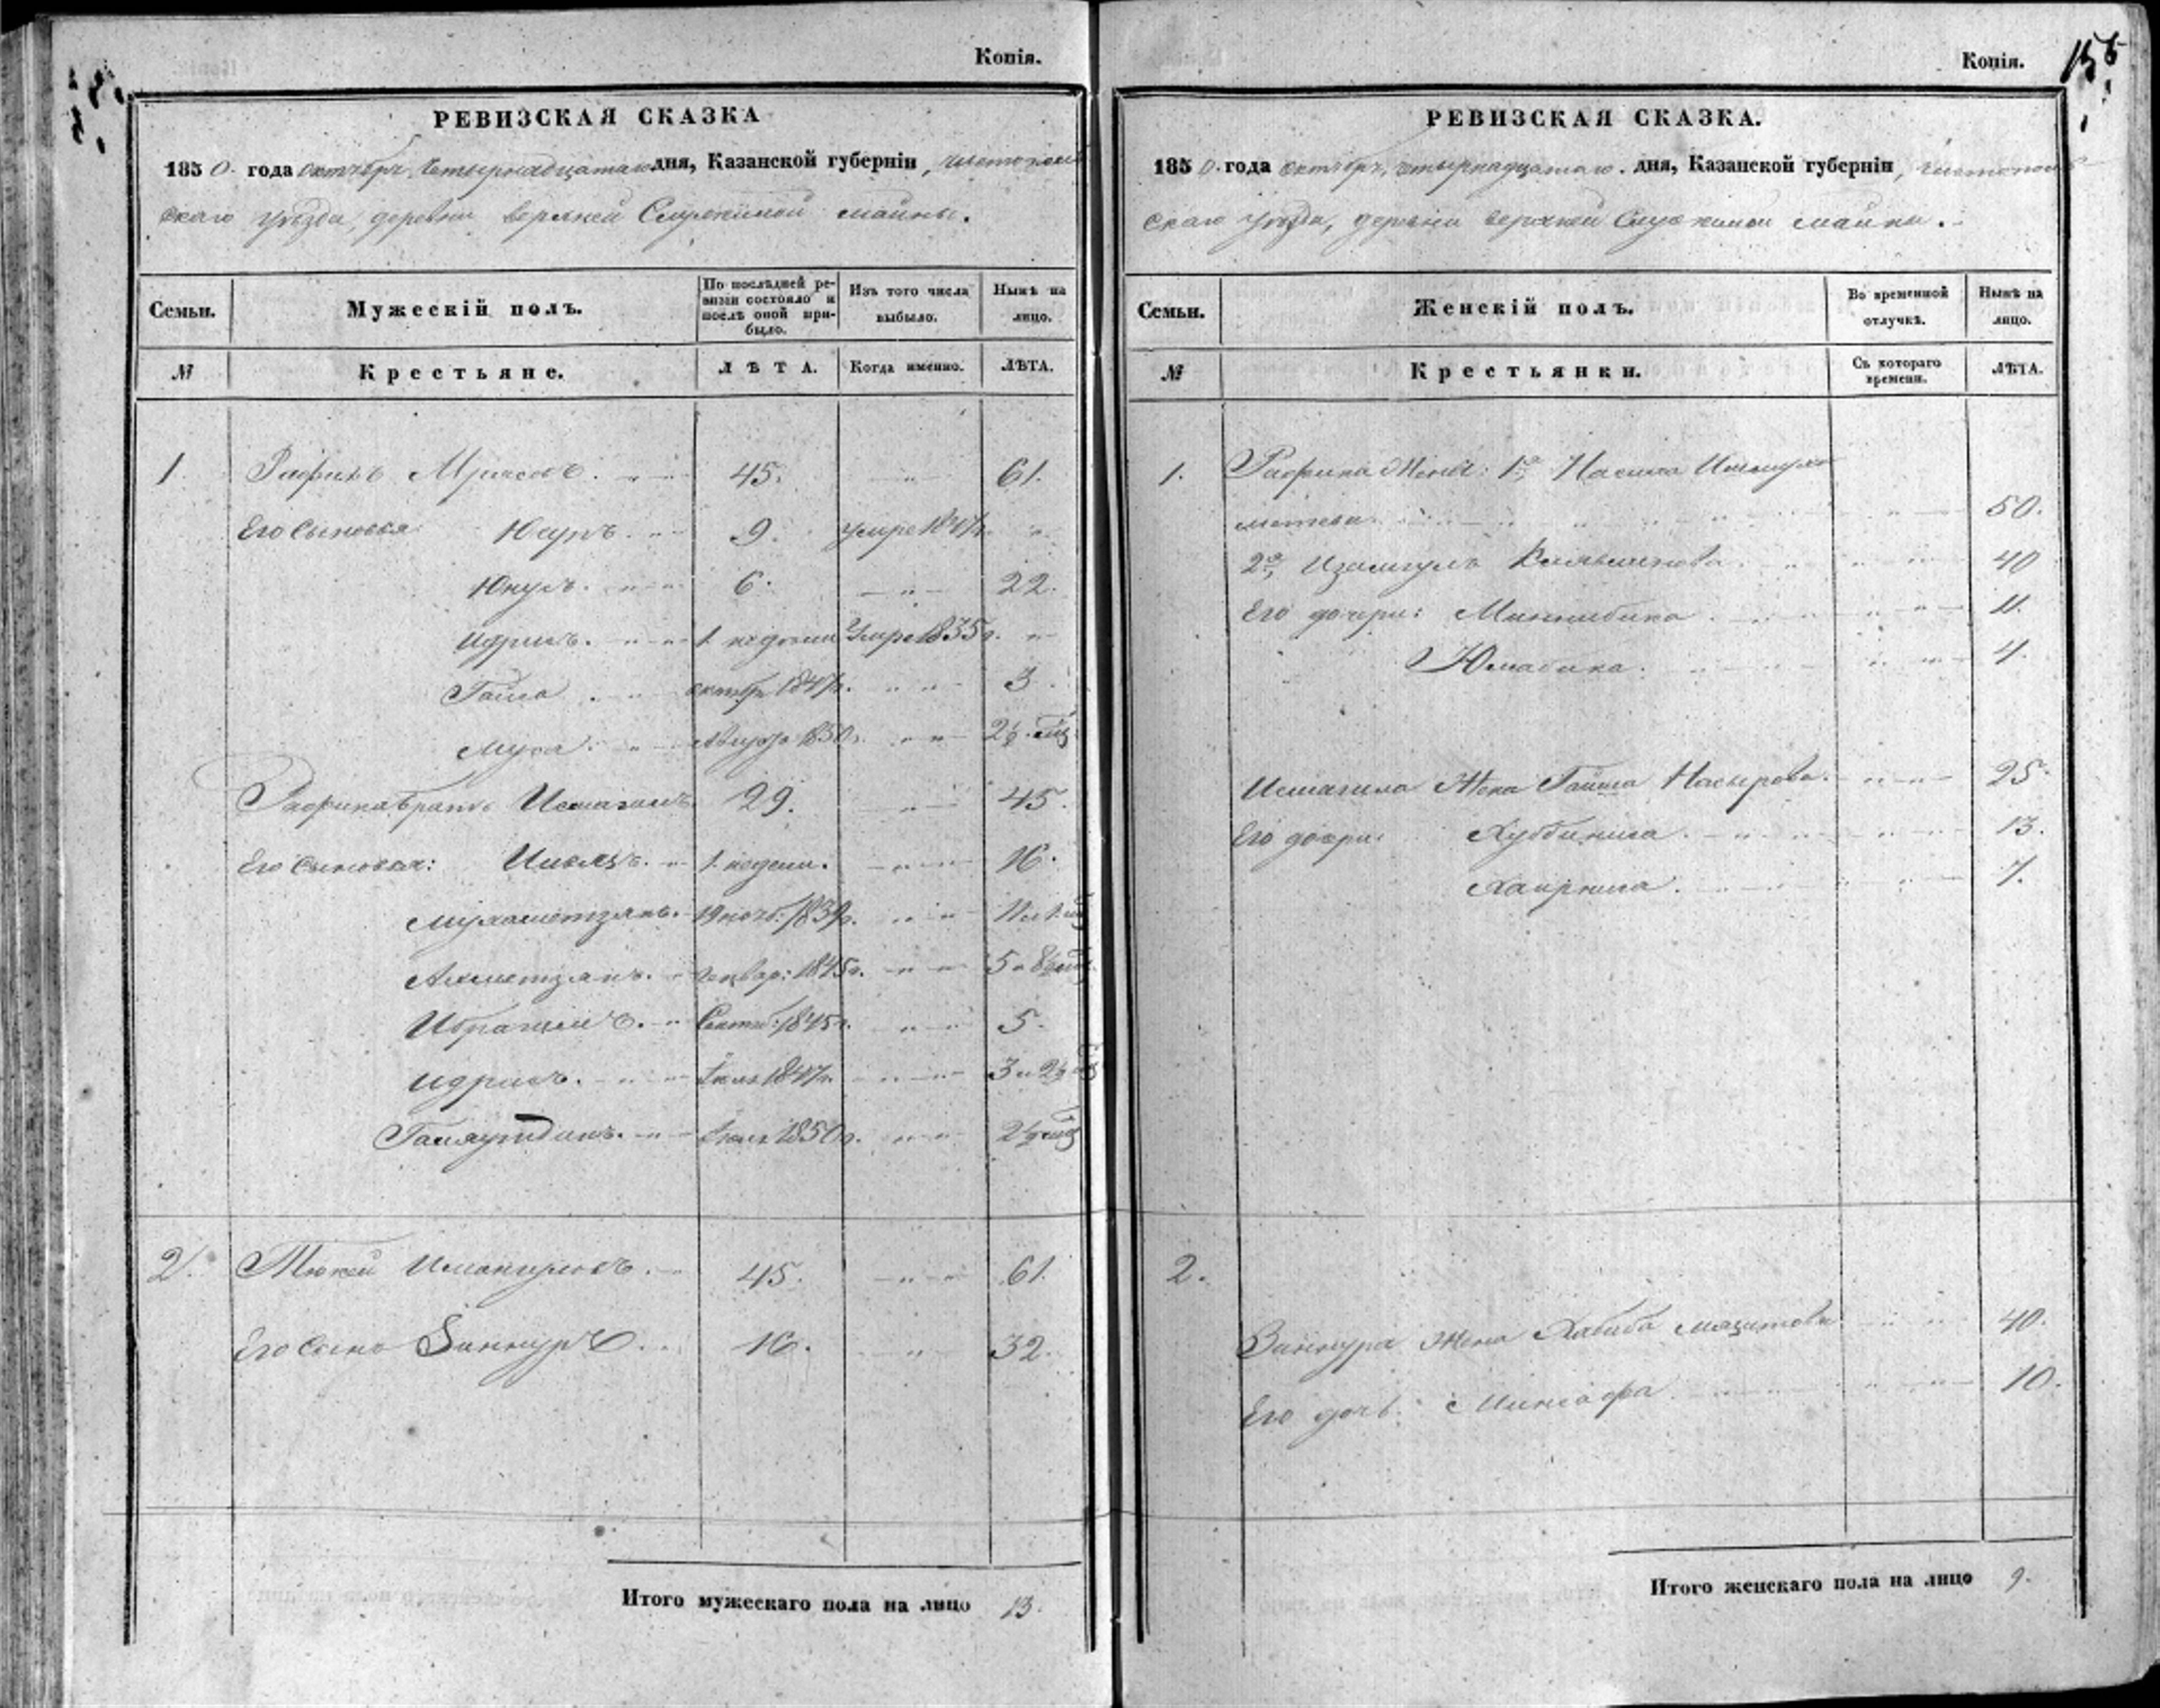 Копія.
РЕВИЗСКАЯ СКАЗКА
1850. года октября четырнадцатаго дня, Казанской губерніи, чистополь
скаго уѣзда, деревни верхней майны.
Семьи.
Мужескій полъ.
По послѣдней ре-
визіи состояло и
послѣ оной при-
было.
Изъ того числа
выбыло.
Нынѣ на
лицо.
№
Крестьяне.
ЛѢТА.
Когда именно.
ЛѢТА.
1. Рафикъ 45. 61.
Его сыновья 9. умре 1847г.
Юнусъ. 6. 22.
Идрисъ. 1. недели Умре 1835г.
Гайса октябр 1847г. 3
Муса. Августа 1850г. 2½ мѣс
Рафика братъ Исмагилъ 29. 45.
Его сыновья: 1. недели. 16.
Мухаметзянъ. 19 нояб: 1839г. 11
Ахметзянъ. генвар: 1845г. 5 и 8½
Ибрагимъ. Сентяб: 1845г. 5.
Идрисъ. Іюля 1847г. 3 и 2½
Іюля 1850г. 2½ мѣс
2. 45. 61.
Его сынъ 16. 32.
Итого мужескаго пола на лицо 13.
Копія.
РЕВИЗСКАЯ СКАЗКА.
1850. года октября, четырнадцатаго. дня, Казанской губерніи, чистополь
скаго уѣзда, деревни верхней майны.
Семьи.
Женскій полъ.
Во временной
отлучкѣ.
Нынѣ на
лицо.
№
Крестьянки.
Съ котораго
времени.
ЛѢТА.
1. Рафика Жены: 1я,
метева 50.
2я, 40
Его дочери: Миннибика 11.
Юмабика. 4.
Исмагила Жена Гайша Насырова. 25.
Его дочери: 13.
7.
2.
Жена Хабиба 40.
Его дочь: 10.
Итого женскаго пола на лицо 9.